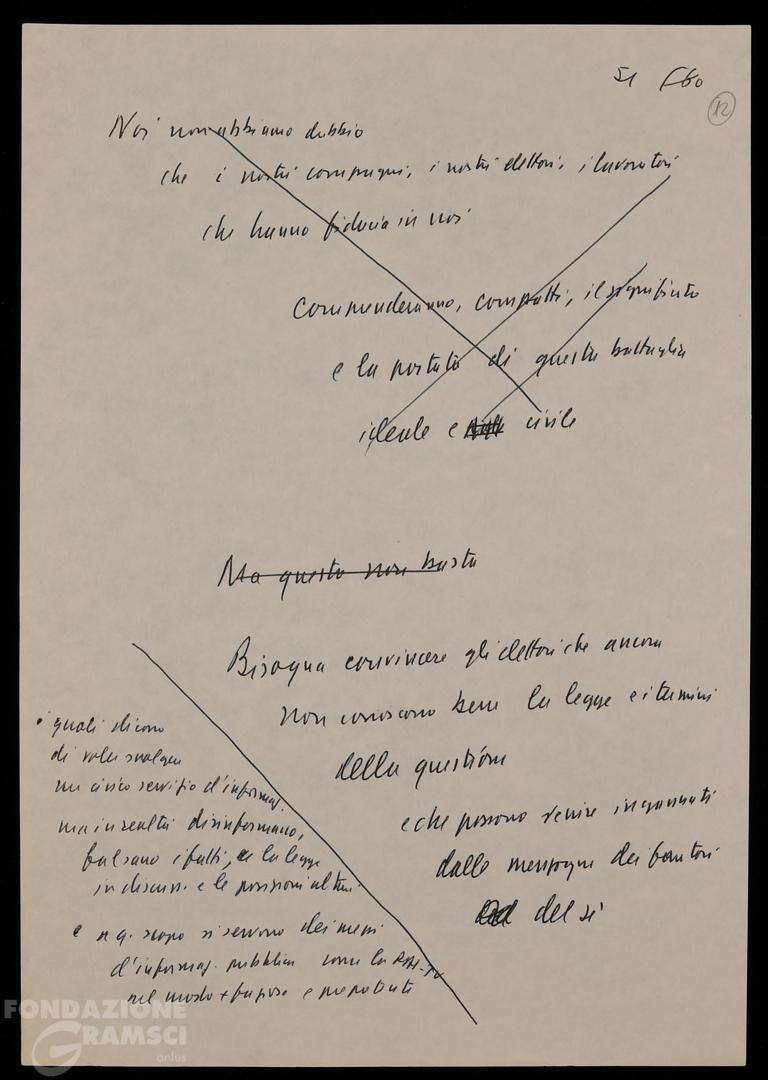 51
12
Noi non abbiamo dubbio
che i nostri compagni, i nostri elettori, i lavoratori
che hanno fiducia in noi
comprenderanno, compatti, il significato
e la portata di questa battaglia
ideale e civile
Ma questo non basta
Bisogna convincere gli elettori che ancora
non conoscono bene la legge e i termini
della questione
e che possono venire ingannati
dalle menzogne dei fautori
del sì
i quali dicono
di voler svolgere
un civico servizio d'informaz.
ma in realtà disinformano,
falsano i fatti, la legge
in discuss. e le posizioni altrui.
e a q. scopo si servono dei mezzi
d'informaz. pubblica come la RAI-TV
nel modo + fazioso e prepotente
FONDAZIONE
GRAMSCI
onlus